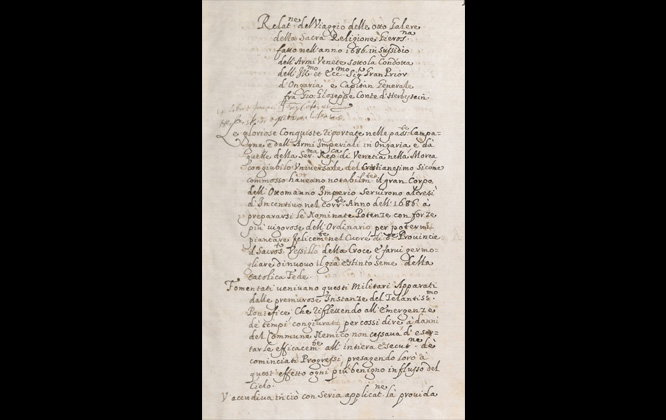 Relat.ne del Viaggio delle otto Galere
della Sacra Religione Gieros.na
fatto nell'anno 1686. in sussidio
dell'Armi Venete sotto la Condotta
dell' Ill.mo et Ecc.mo Sig.r Gran Prior
d'Ongaria e Capitan Generale
fra Gio: Gioseppe Conte d'Herbestein
Le gloriose Conquiste riportate nelle pas.te Campa
gne e dell'Armi Imperiali in Ongaria e da
quelle della Ser.ma Rep.ca di Venetia nella Morea
con giubilo Universale del Cristianesimo si come
commosso haveano notabilm.te il gran Corpo
dell' Ottomanno Imperio servirono altresì
d'Incentivo nel corr.te Anno dell' 1686. à
prepararsi le Nominate Potenze con forze
più vigorose dell' Ordinario per poter mi
piantare felicem.te nel Cuore di d.e Provincie
il Sacros.to Vesillo della Croce e farvi germo
gliare di nuovo il già estinto seme della
Catolica Fede.
Fomentati venivano questi Militari Apparati
dalle premurose Instanze del Zelantiss.mo
Pontefice Che riflettendo all' Emergenze
de tempi congiurati per così dire à danni
del Commune Nemico non cessava d'esor
tarle efficacem.te all' intiera esecut.ne de
cominciati Progressi, presagendo loro à
quest' effetto ogni più benigno influsso del
Cielo.
V'accudiva in ciò con seria applicat.ne la provida